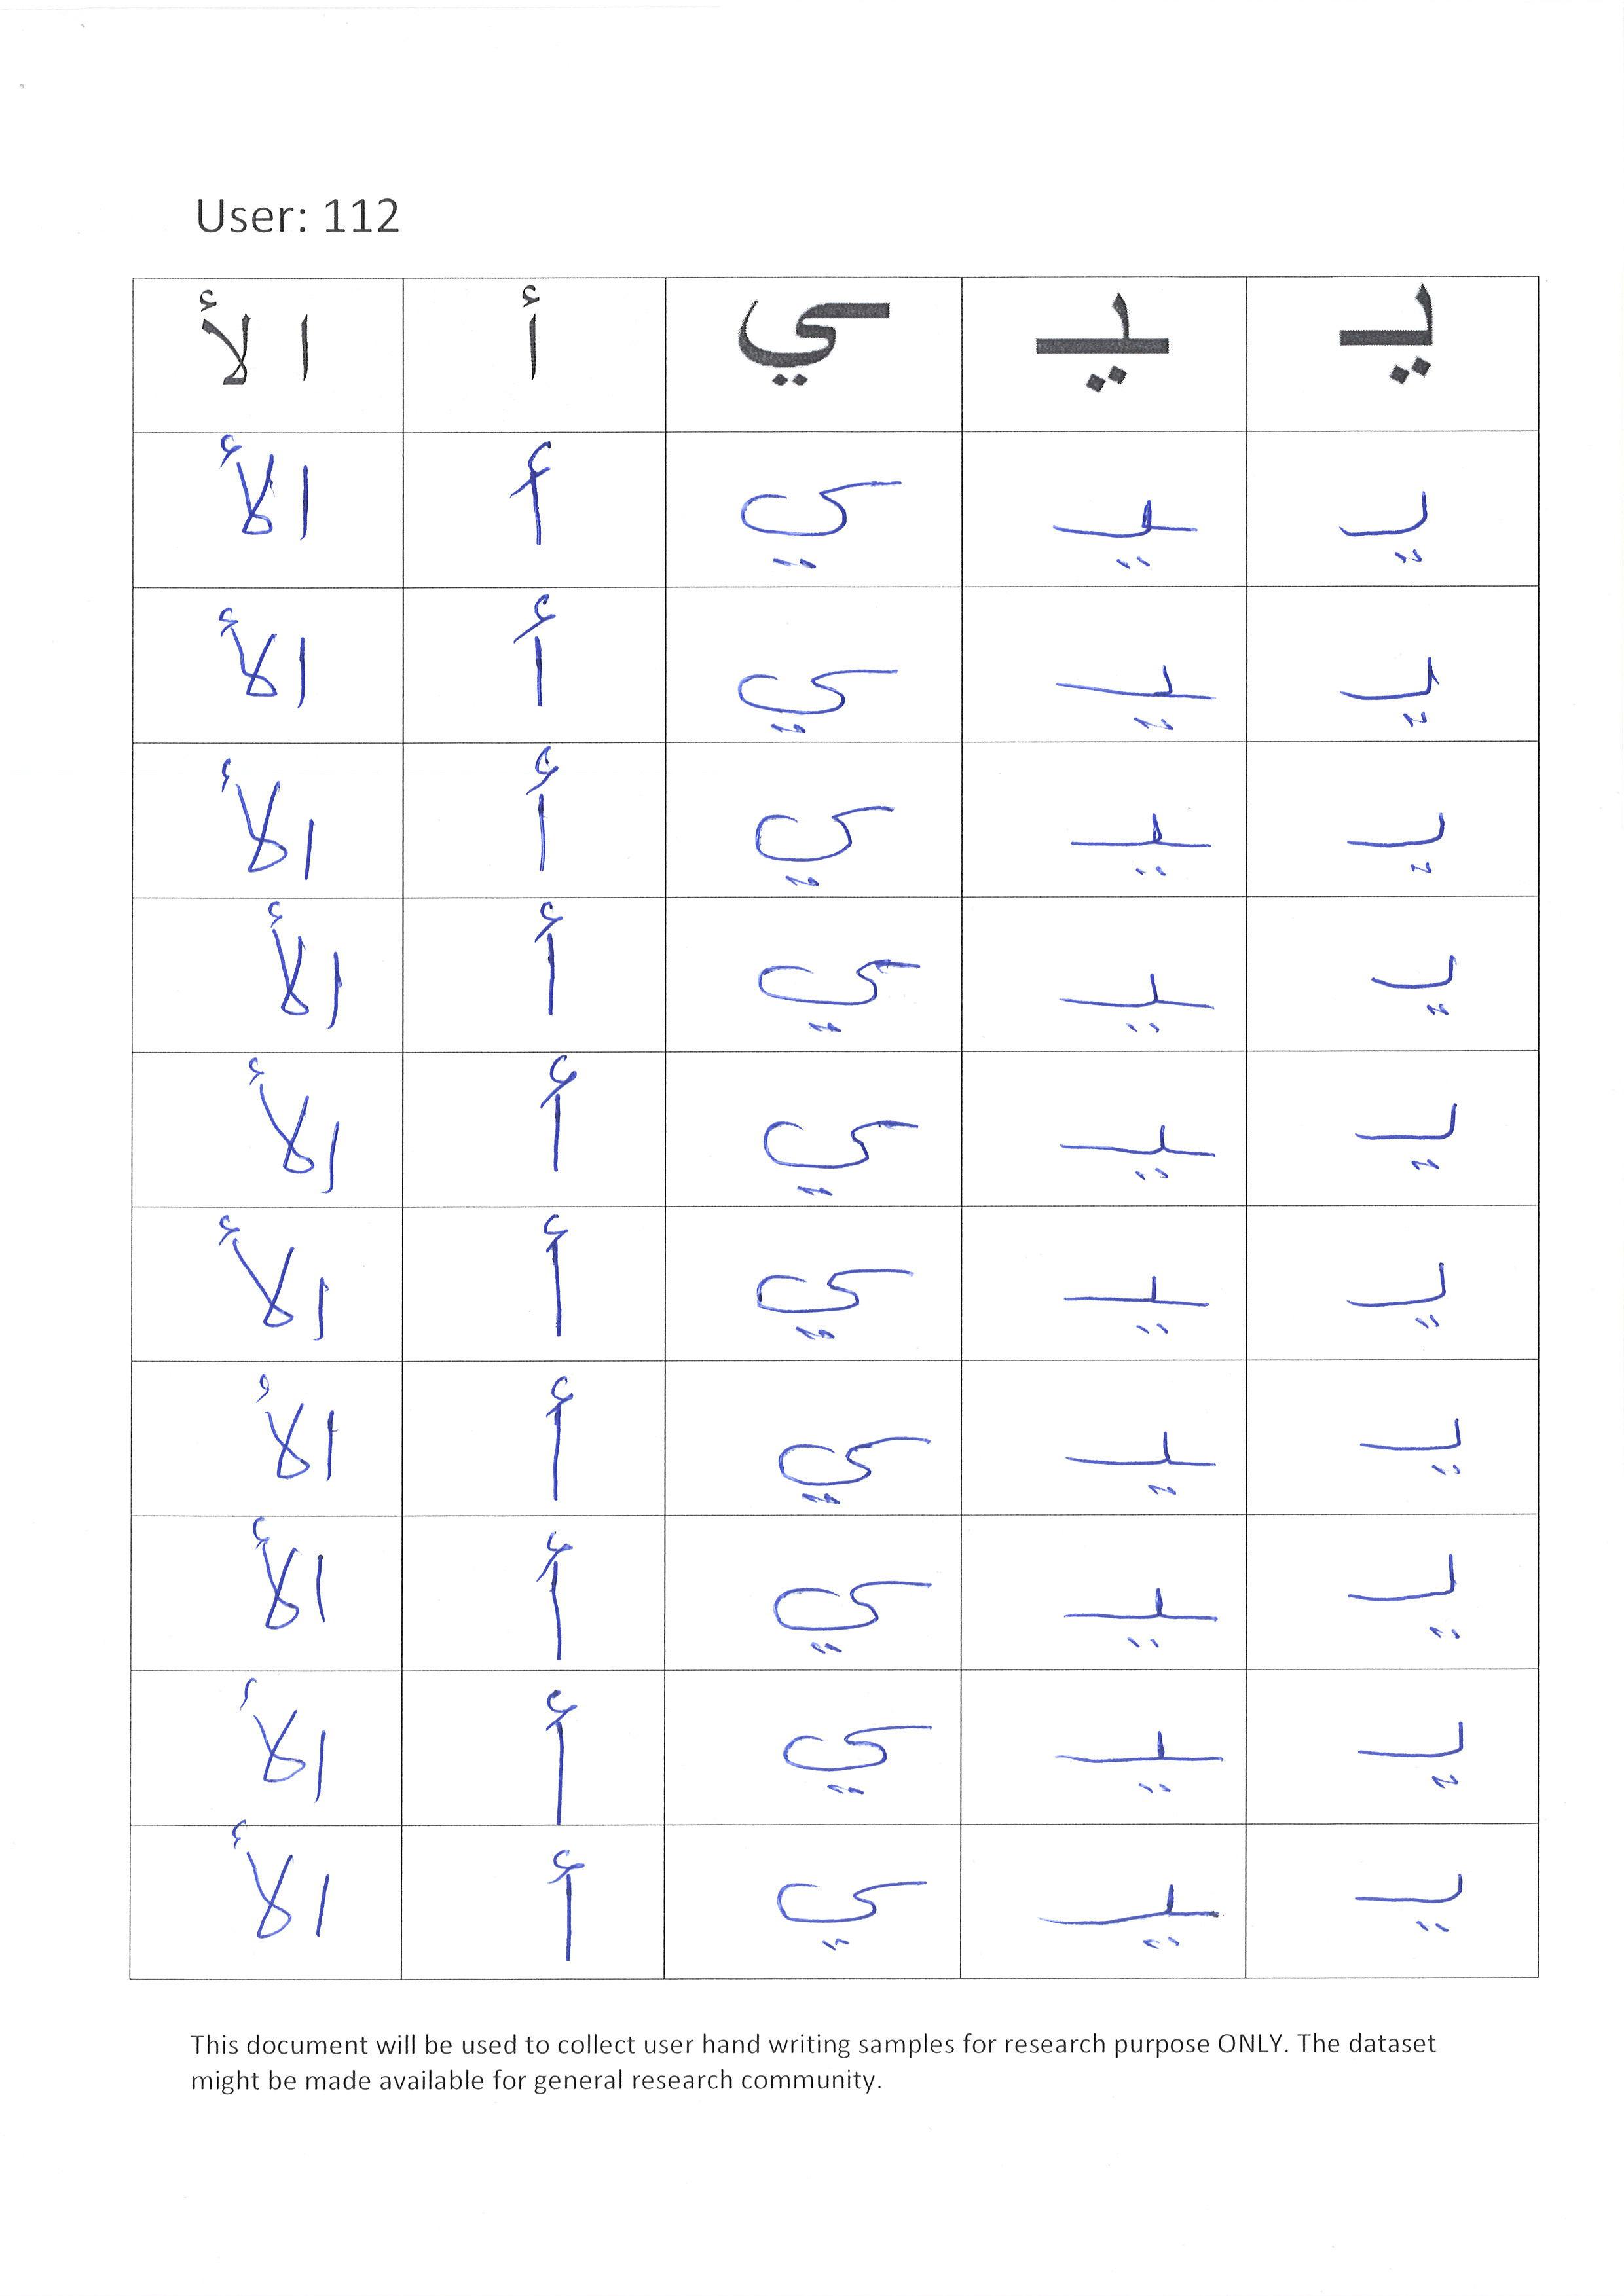 User: 112
يـ ـيـ ـي أ ا لأ
يـ ـيـ ـي أ الأ
يـ ـيـ ـي أ الأ
يـ ـيـ ـي أ الأ
يـ ـيـ ـي أ الأ
يـ ـيـ ـي أ الأ
يـ ـيـ ـي أ الأ
يـ ـيـ ـي أ الأ
يـ ـيـ ـي أ الأ
يـ ـيـ ـي أ الأ
يـ ـيـ ـي أ الأ
This document will be used to collect user hand writing samples for research purpose ONLY. The dataset
might be made available for general research community.